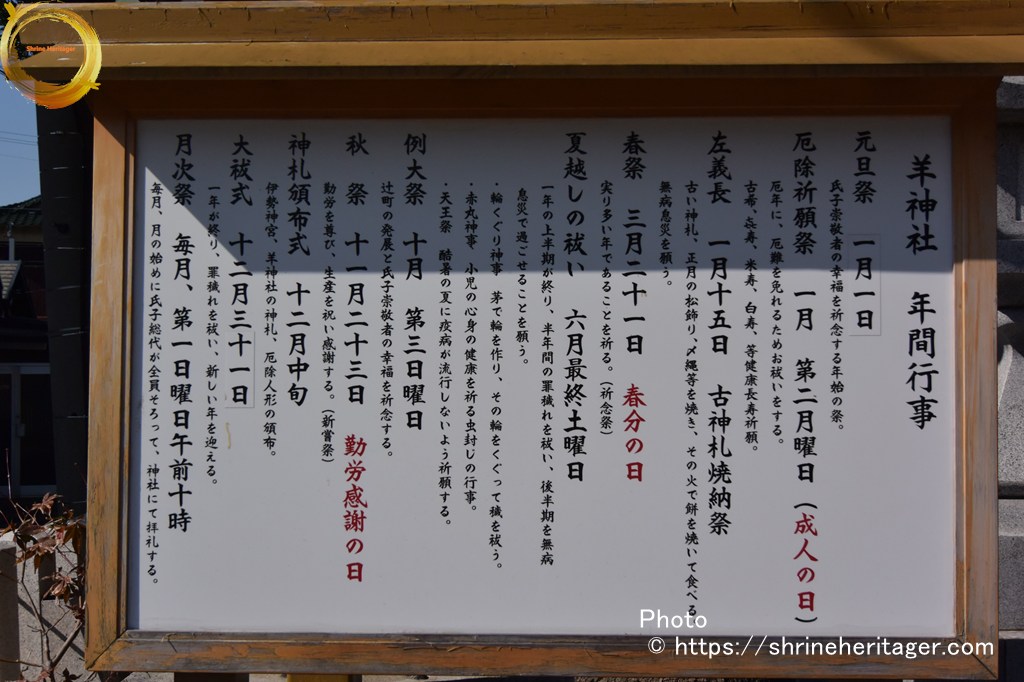 羊神社 年間行事
元旦祭 一月一日
氏子崇敬者の幸福を祈念する年始の祭。
厄除祈願祭 一月 第二月曜日(成人の日)
厄年に、厄難を免れるためお祓いをする。
古希、㐂寿、米寿、白寿、等健康長寿祈願。
左義長 一月十五日 古神札焼納祭
古い神札、正月の松飾り、〆縄等を焼き、その火で餅を焼いて食べる
無病息災を願う。
春祭 三月二十一日 春分の日
実り多い年であることを祈る。(祈念祭)
夏越しの祓い 六月最終土曜日
一年の上半期が終り、半年間の罪穢れを祓い、後半期を無病
息災で過ごせることを願う。
・輪くぐり神事 茅で輪を作り、その輪をくぐって穢を祓う。
・赤丸神事 小児の心身の健康を祈る虫封じの行事。
・天王祭 酷暑の夏に疫病が流行しないよう祈願する。
例大祭 十月 第三日曜日
辻町の発展と氏子崇敬者の幸福を祈念する。
秋 祭 十一月二十三日 勤労感謝の日
勤労を尊び、生産を祝い感謝する。(新嘗祭)
神札頒布式 十二月中旬
伊勢神宮、羊神社の神札、厄除人形の頒布。
大祓式 十二月三十一日
一年が終り、罪穢れを祓い、新しい年を迎える。
月次祭 毎月、第一日曜日午前十時
毎月、月の始めに氏子総代が全員そろって、神社にて拝礼する。
Shrine Heritager
Photo
© https://shrineheritager.com